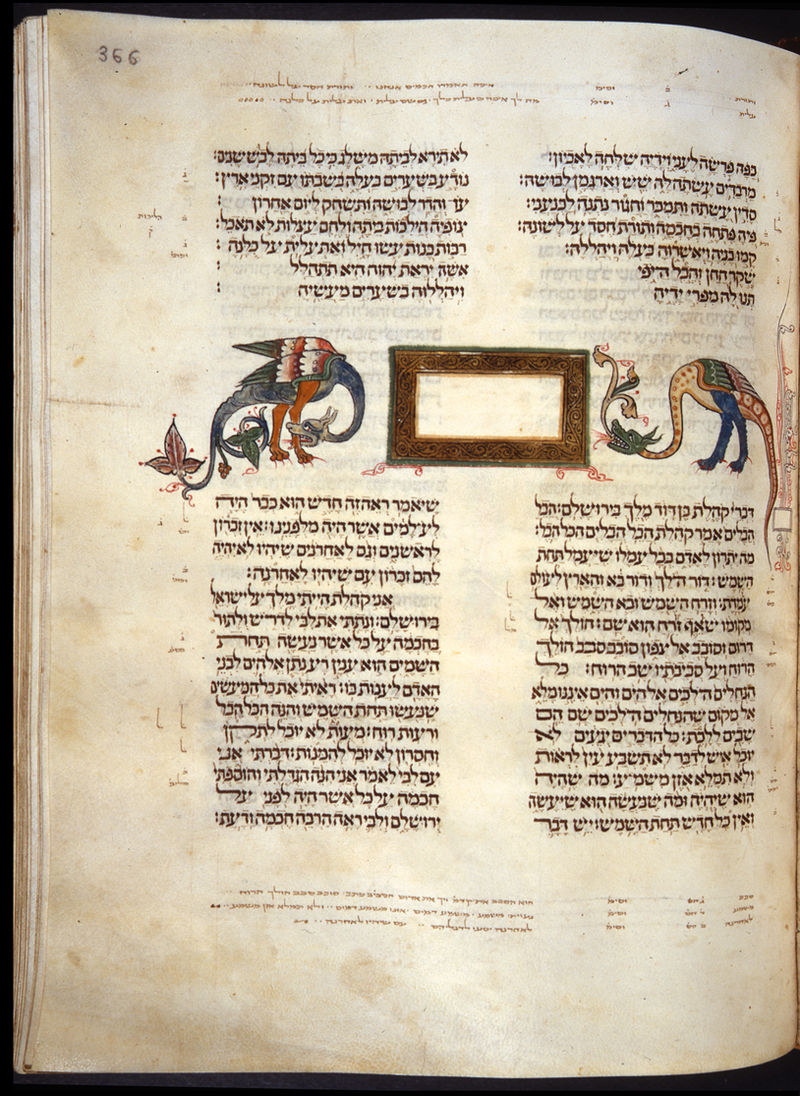 366
חכמים אנחנו ותורת חסד על לשונה
ואת עלית על כלנה
כפה פרשה לעני וידיה שלחה לאביון:
לא תירא לביתה משלג כי כל ביתה לבש שנים:
מרבדים עשתה לה שש וארגמן לבושה:
נודע בשערים בעלה בשבתו עם זקני ארץ:
סדין עשתה ותמכר וחגור נתנה לכנעני:
עז והדר לבושה ותשחק ליום אחרון:
פיה פתחה בחכמה ותורת חסד על לשונה:
צופיה הילכות ביתה ולחם עצלות לא תאכל:
קמו בניה ויאשרוה בעלה ויהללה:
רבות בנות עשו חיל ואת עלית על כלנה:
שקר החן והבל היפי
אשה יראת יהוה היא תתהלל:
תנו לה מפרי ידיה
ויהללוה בשערים מעשיה:
דברי קהלת בן דוד מלך בירושלם: הבל
הבלים אמר קהלת הבל הבלים הכל הבל:
מה יתרון לאדם בכל עמלו שיעמל תחת
השמש: דור הולך ודור בא והארץ לעולם
עמדת: וזרח השמש ובא השמש ואל
מקומו שואף זורח הוא שם: הולך אל
דרום וסובב אל צפון סובב סבב הולך
הרוח ועל סביבתיו שב הרוח: כל
הנחלים הלכים אל הים והים איננו מלא
אל מקום שהנחלים הלכים שם הם
שבים ללכת: כל הדברים יגעים לא
יוכל איש לדבר לא תשבע עין לראות
ולא תמלא אזן משמע: מה שהיה
הוא שיהיה ומה שנעשה הוא שיעשה
ואין כל חדש תחת השמש: יש דבר
שיאמר ראה זה חדש הוא כבר היה
לעלמים אשר היה מלפננו: אין זכרון
לראשנים וגם לאחרנים שיהיו לא יהיה
להם זכרון עם שיהיו לאחרנה:
אני קהלת הייתי מלך על ישראל
בירושלם: ונתתי את לבי לדרוש ולתור
בחכמה על כל אשר נעשה תחת
השמים הוא ענין רע נתן אלהים לבני
האדם לענות בו: ראיתי את כל המעשים
שנעשו תחת השמש והנה הכל הבל
ורעות רוח: מעות לא יוכל לתקן
וחסרון לא יוכל להמנות: דברתי אני
עם לבי לאמר אני הנה הגדלתי והוספתי
חכמה על כל אשר היה לפני על
ירושלם ולבי ראה הרבה חכמה ודעת:
סובב סבב הולך הרוח
ולא תמלא אזן משמע
לאחרנה יסעו לדגליהם עם שיהיו לאחרנה